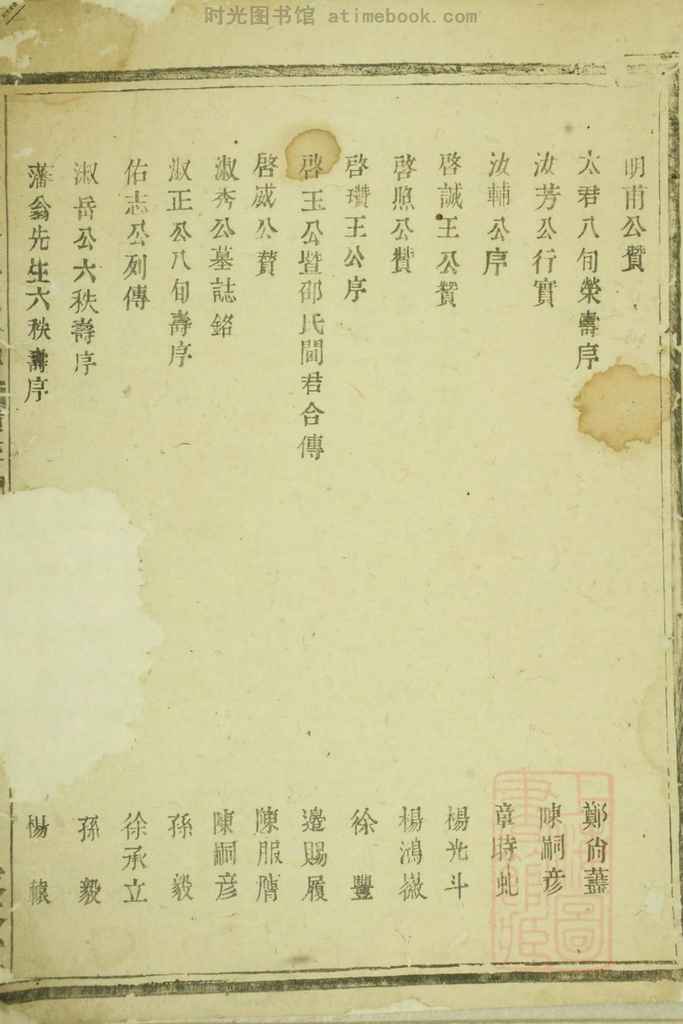 时光图书馆 atimebook.com
明甫公贊
太君八旬榮壽序 鄭尙藎
汝芳公行實 陳嗣彦
汝輔公序 章時虬
啓誠王公贊 楊光斗
啓照公贊 楊鴻
啓瓚王公序 徐豐
啓玉公暨邵氏閫君合傳 邊賜履
啓咸公贊 陳服膺
淑秀公墓誌銘 陳嗣彦
淑正公八旬壽序 孫毅
佑志公列傳 徐承立
淑岳公六秩壽序 孫毅
藩翁先生六秩壽序 楊